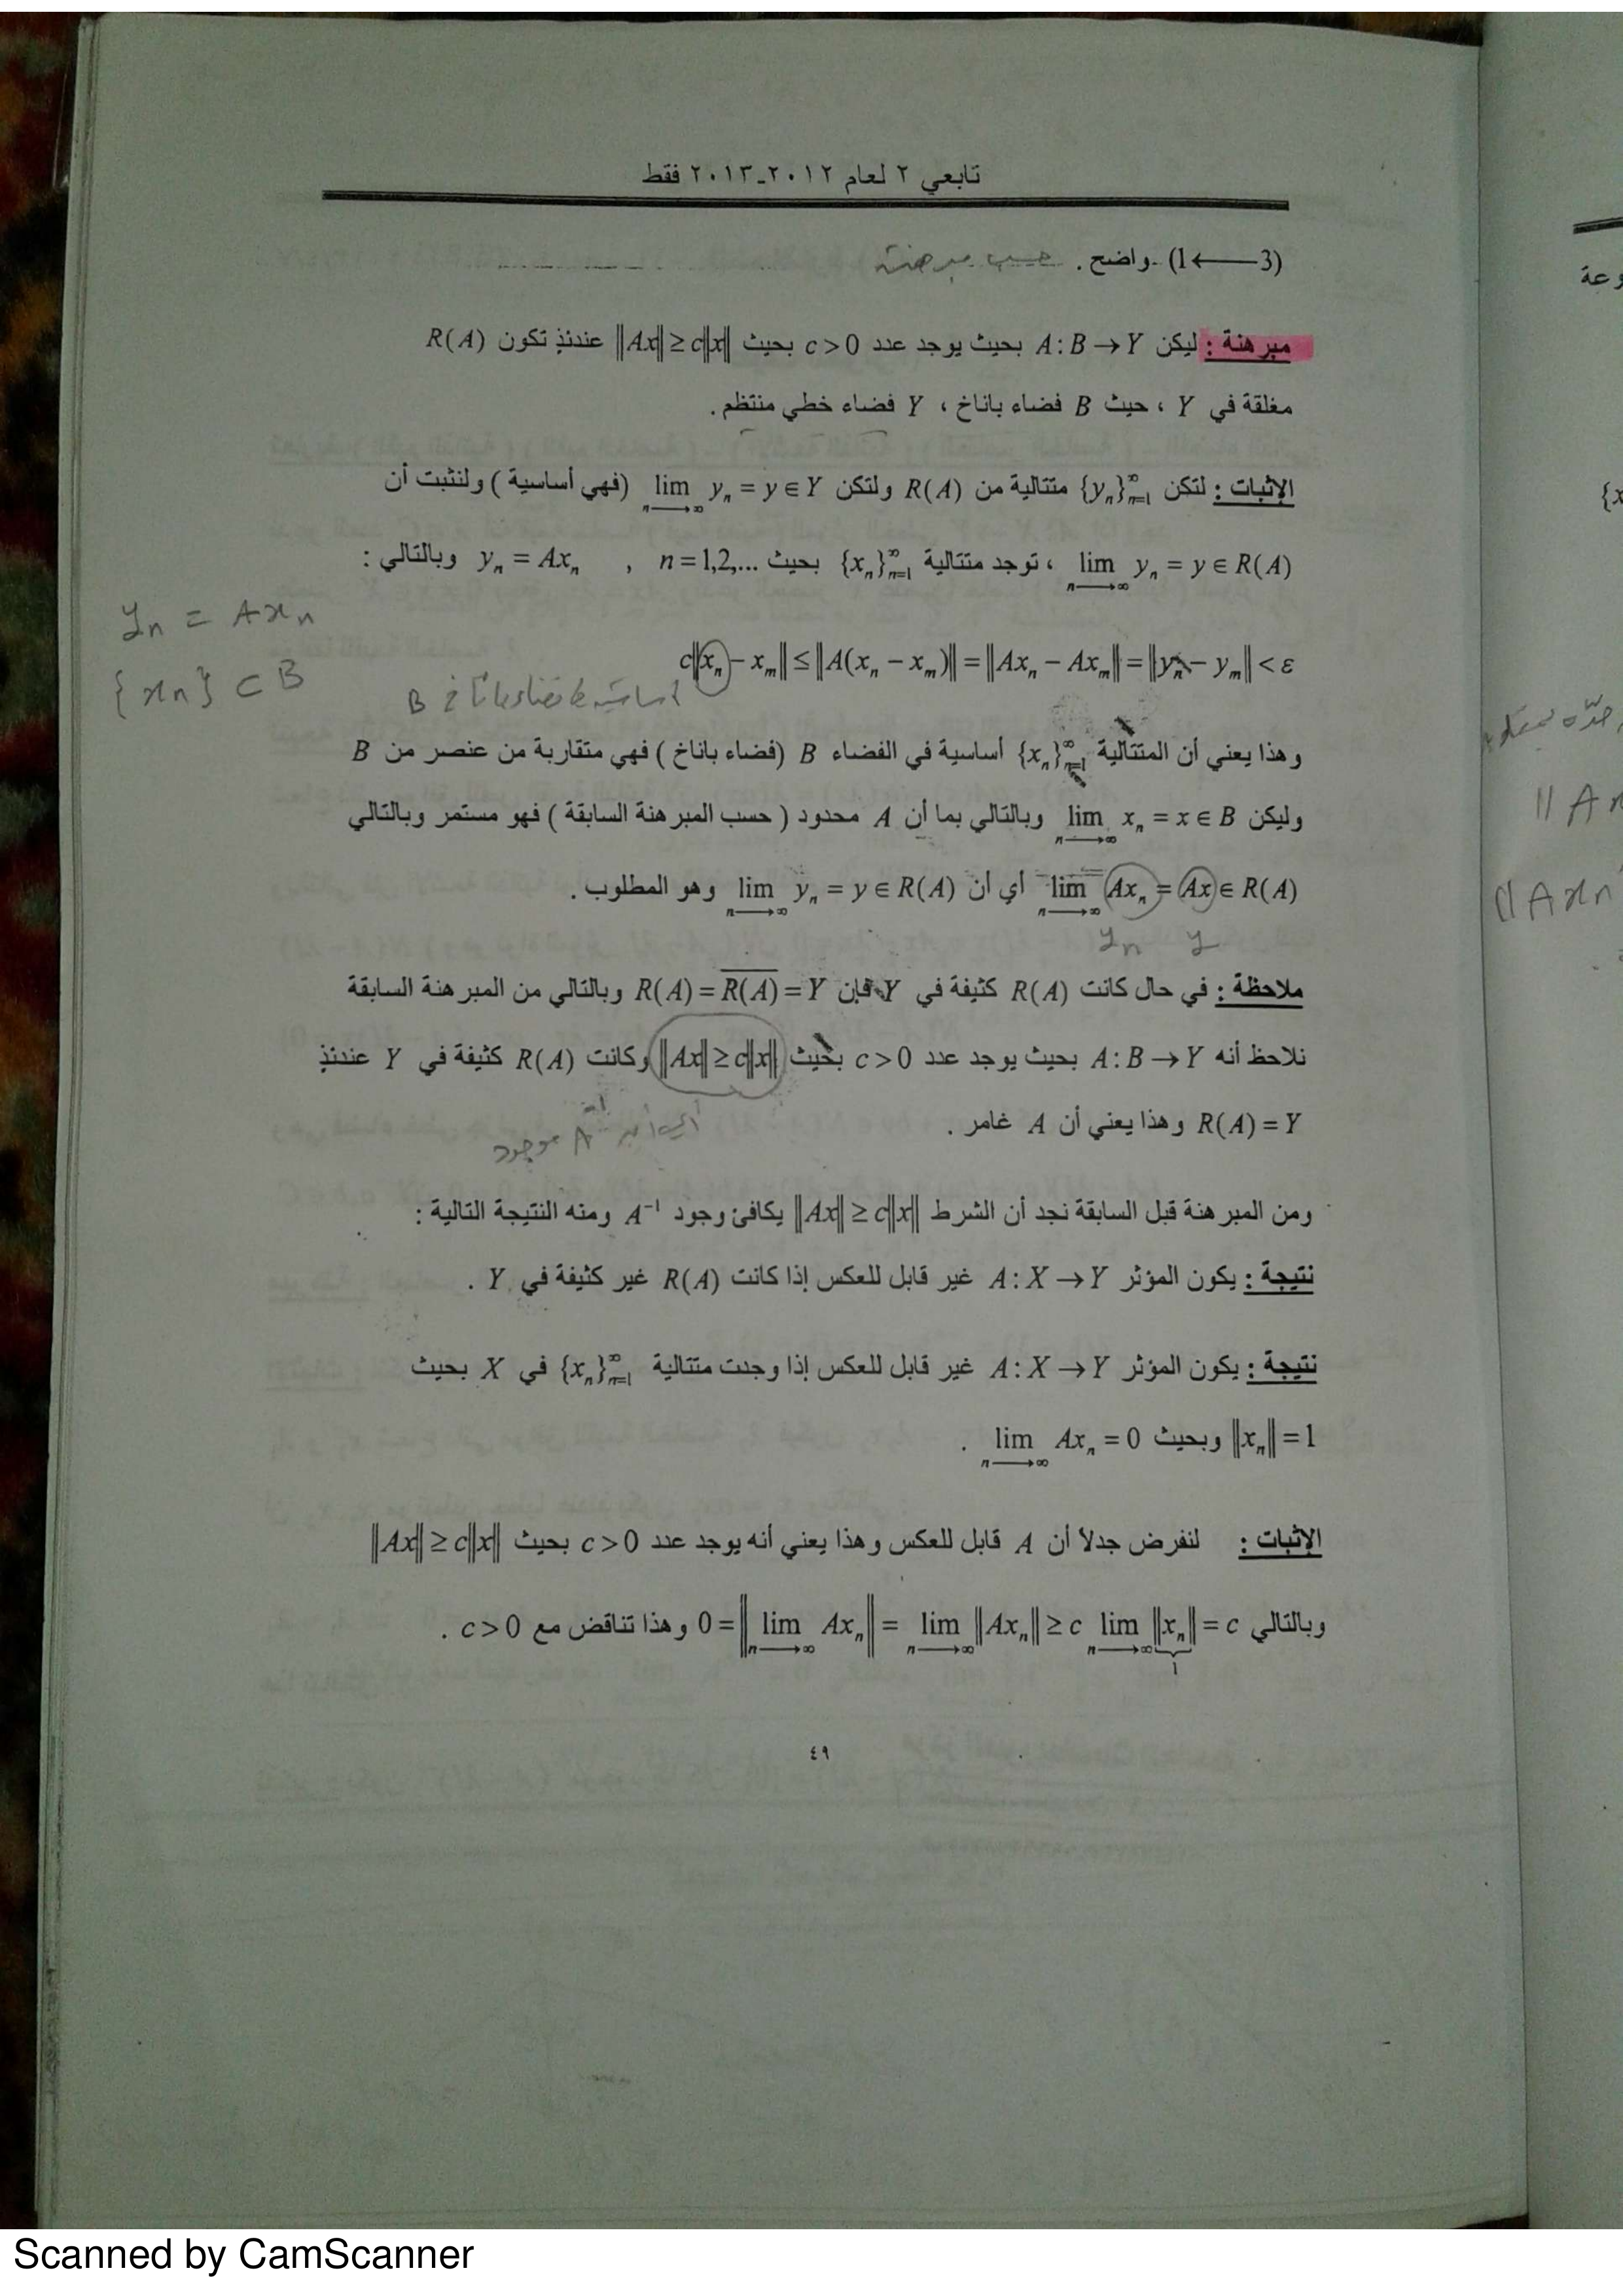 تابعي ٢ لعام ٢٠١٢-٢٠١٣ فقط
(3 ⟶ 1) واضح . حسب مبرهنة
مبرهنة : ليكن A : B → Y بحيث يوجد عدد c > 0 بحيث ‖Ax‖ ≥ c‖x‖ عندئذٍ تكون R(A)
مغلقة في Y ، حيث B فضاء باناخ ، Y فضاء خطي منتظم .
الإثبات : لتكن {y_n}_{n=1}^∞ متتالية من R(A) ولتكن lim_{n→∞} y_n = y ∈ Y (فهي أساسية ) ولنثبت أن
lim_{n→∞} y_n = y ∈ R(A) ، توجد متتالية {x_n}_{n=1}^∞ بحيث y_n = Ax_n , n = 1,2,... وبالتالي :
y_n = Ax_n
{x_n} ⊂ B
c‖x_n − x_m‖ ≤ ‖A(x_n − x_m)‖ = ‖Ax_n − Ax_m‖ = ‖y_n − y_m‖ < ε
أساسية في فضاء باناخ B
وهذا يعني أن المتتالية {x_n}_{n=1}^∞ أساسية في الفضاء B (فضاء باناخ ) فهي متقاربة من عنصر من B
وليكن lim_{n→∞} x_n = x ∈ B وبالتالي بما أن A محدود ( حسب المبرهنة السابقة ) فهو مستمر وبالتالي
lim_{n→∞} Ax_n = Ax ∈ R(A) أي أن lim_{n→∞} y_n = y ∈ R(A) وهو المطلوب .
y_n y
ملاحظة : في حال كانت R(A) كثيفة في Y فإن R(A) = \overline{R(A)} = Y وبالتالي من المبرهنة السابقة
نلاحظ أنه A : B → Y بحيث يوجد عدد c > 0 بحيث ‖Ax‖ ≥ c‖x‖ وكانت R(A) كثيفة في Y عندئذٍ
R(A) = Y وهذا يعني أن A غامر .
موجود
ومن المبرهنة قبل السابقة نجد أن الشرط ‖Ax‖ ≥ c‖x‖ يكافئ وجود A⁻¹ ومنه النتيجة التالية :
نتيجة : يكون المؤثر A : X → Y غير قابل للعكس إذا كانت R(A) غير كثيفة في Y .
نتيجة : يكون المؤثر A : X → Y غير قابل للعكس إذا وجدت متتالية {x_n}_{n=1}^∞ في X بحيث
‖x_n‖ = 1 وبحيث lim_{n→∞} Ax_n = 0 .
الإثبات : لنفرض جدلاً أن A قابل للعكس وهذا يعني أنه يوجد عدد c > 0 بحيث ‖Ax‖ ≥ c‖x‖
وبالتالي 0 = ‖lim_{n→∞} Ax_n‖ = lim_{n→∞} ‖Ax_n‖ ≥ c lim_{n→∞} ‖x_n‖ = c وهذا تناقض مع c > 0 .
1
٤٩
وعة
{x
‖Ax
‖Ax_n
Scanned by CamScanner